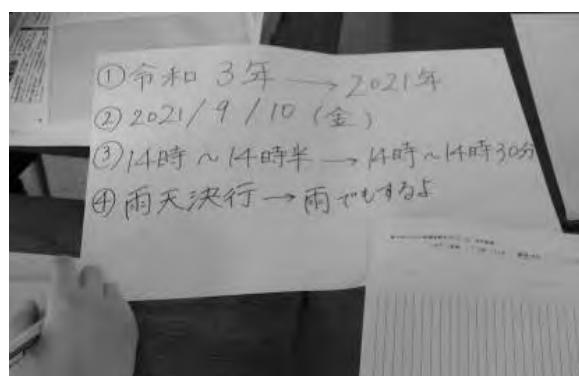 ①令和 3年 → 2021年
②2021/9/10 (金)
③14時~14時半 → 14時~14時30分
④雨天決行→雨でもするよ